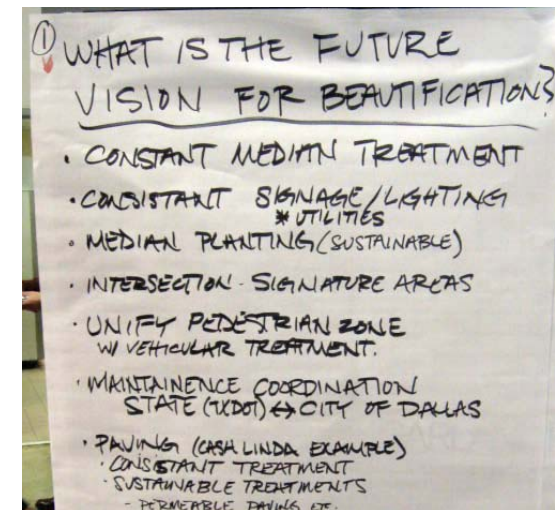 ① WHAT IS THE FUTURE
VISION FOR BEAUTIFICATION?
• CONSTANT MEDIAN TREATMENT
• CONSISTANT SIGNAGE/LIGHTING
* UTILITIES
• MEDIAN PLANTING (SUSTAINABLE)
• INTERSECTION - SIGNATURE AREAS
• UNIFY PEDESTRIAN ZONE
W/ VEHICULAR TREATMENT.
• MAINTAINENCE COORDINATION
STATE (TXDOT) ↔ CITY OF DALLAS
• PAVING (CASH LINDA EXAMPLE)
• CONSISTANT TREATMENT
• SUSTAINABLE TREATMENTS
- PERMEABLE PAVING ETC.